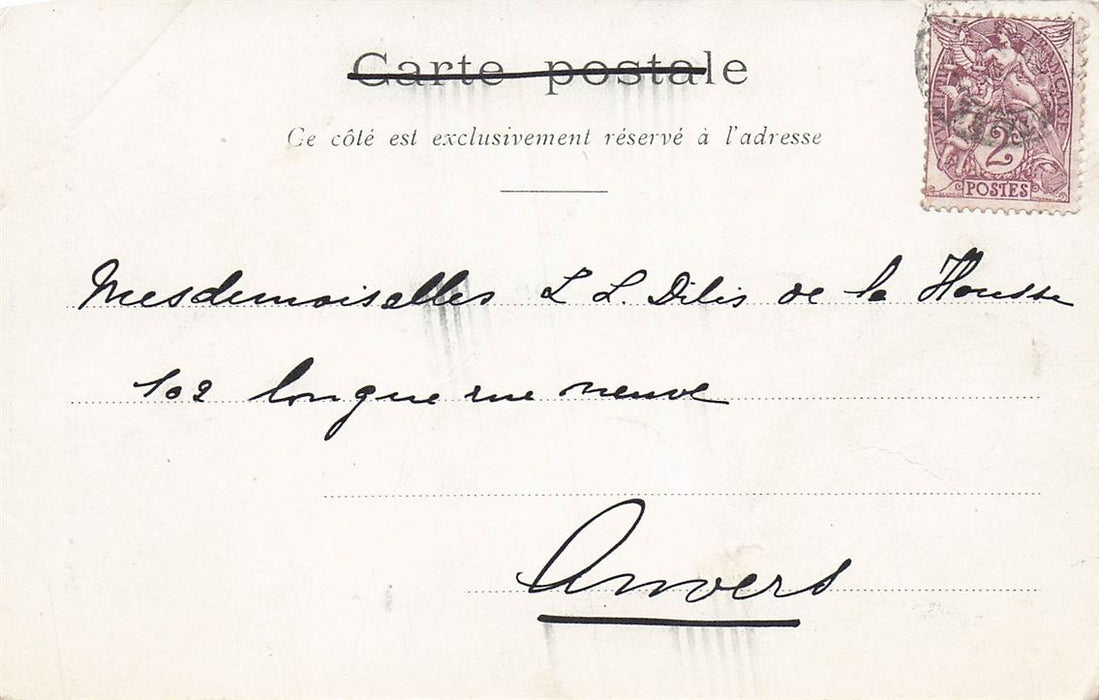 Carte postale
Ce côté est exclusivement réservé à l'adresse
2
POSTES
Mesdemoiselles L L. Dilis de la Housse
102 longue rue neuve
Anvers